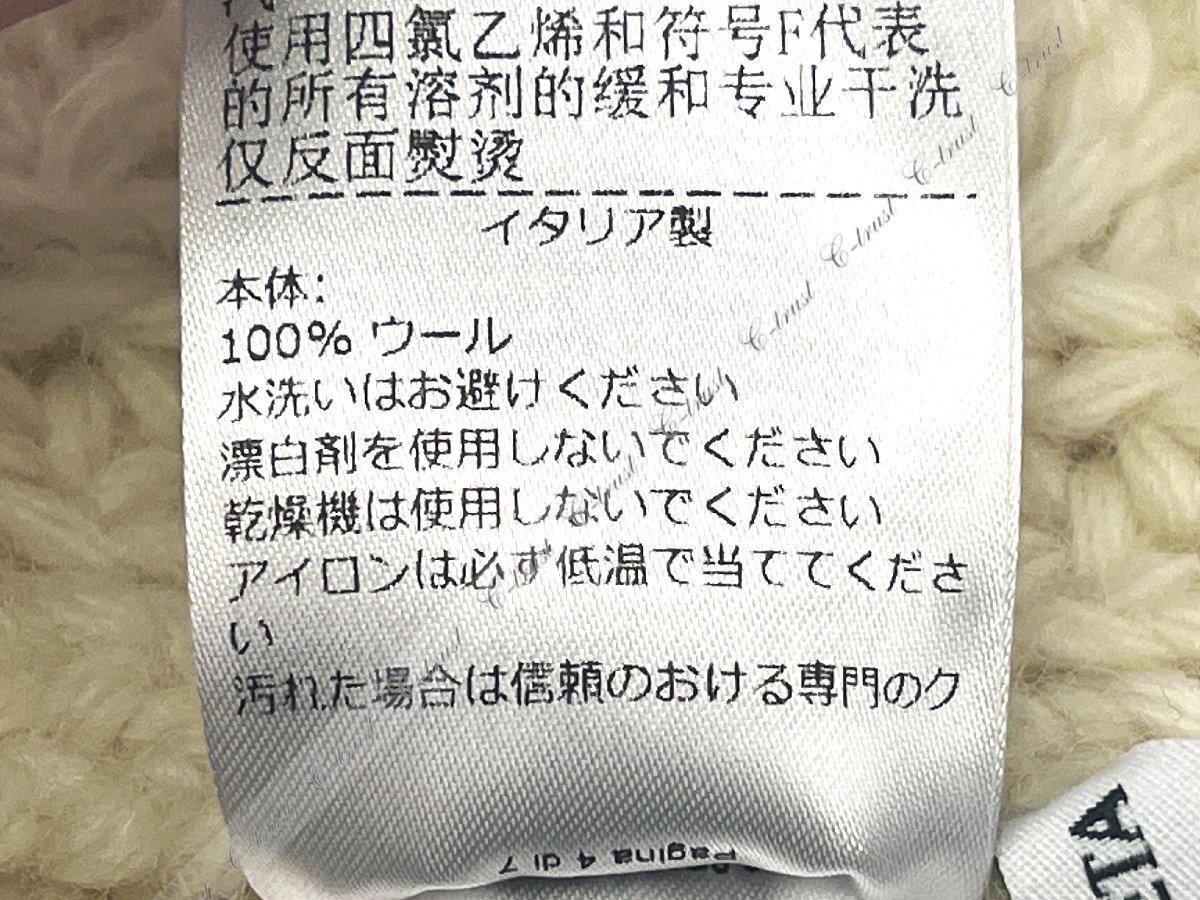 使用四氯乙烯和符号F代表
的所有溶剂的缓和专业干洗
仅反面熨烫
イタリア製
本体:
100% ウール
水洗いはお避けください
漂白剤を使用しないでください
乾燥機は使用しないでください
アイロンは必ず低温で当ててくださ
い
汚れた場合は信頼のおける専門のク
Pagina 4 di 7
C-trust
C-trust
C-trust
C-trust
C-trust